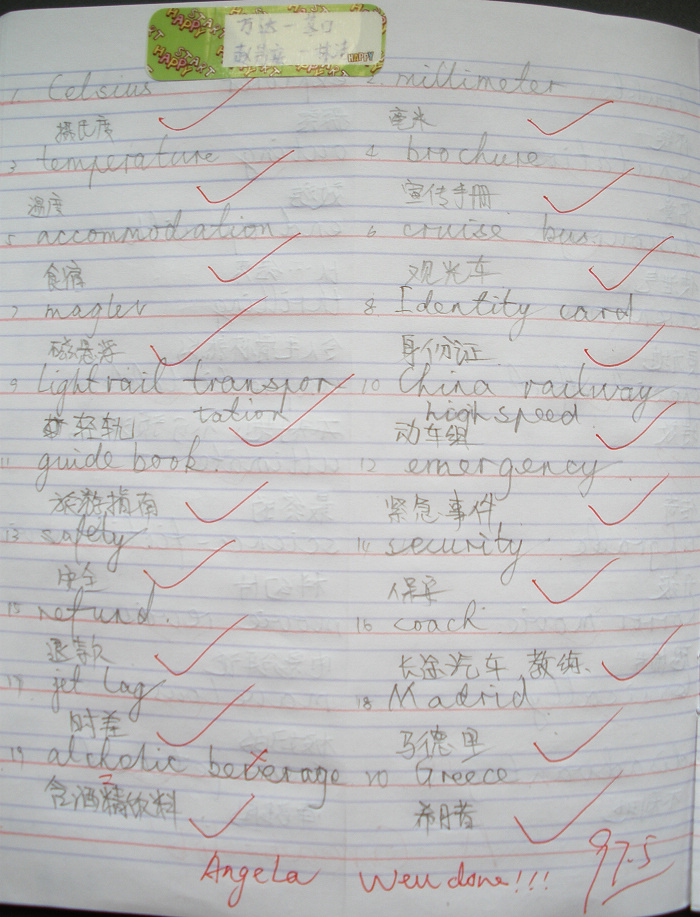 START HAPPY
万达一茎口
HAPPY
1. Celsius 2. millimeter
摄氏度 毫米
3 temperature 4 brochure
温度 宣传手册
5 accommodation 6 cruise bus
食宿 观光车
7 maglev 8 Identity card
磁悬浮 身份证
9 light rail transpor- 10 China railway
tation highspeed
轻轨 动车组
11 guide book. 12 emergency
旅游指南 紧急事件
13 safety 14 security
安全 保安
15 refund. 16 coach
退款 长途汽车 教练.
17 jet lag 18 Madrid
时差 马德里
19 alcholic beverage 20 Greece
含酒精饮料 希腊
Angela Well done!!! 97.5